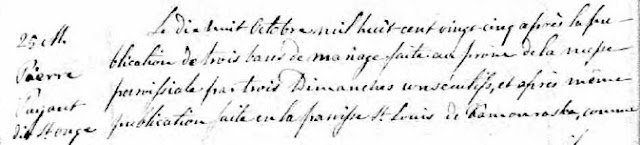 25 M.
Pierre
Payant
dit St onge
Le dix huit Octobre mil huit cent vingt-cinq après la pu-
blication de trois bans de mariage faite au prone de la messe
paroissiale par trois Dimanches consecutifs, et après même
publication faite en la paroisse St Louis de Kamouraska, comme